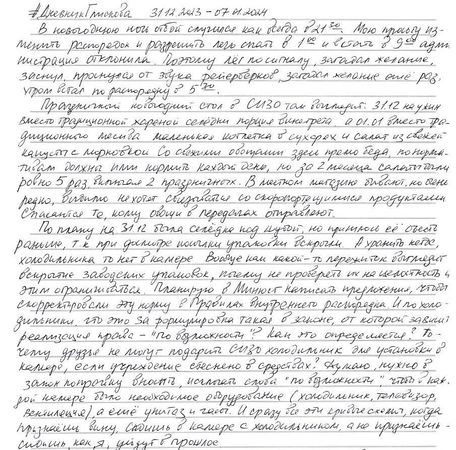 #ДневникГлиюва 31.12.2023 - 07.01.2024
В новогоднюю ночь отбой случился как всегда в 21:00. Мою просьбу из-
менить распорядок и разрешить лечь спать в 1:00 и встать в 9:00 адми-
нистрация отклонила. Поэтому лёг по сигналу, загадал желание,
заснул, проснулся от звука фейерверков, загадал желание ещё раз,
утром встал по распорядку в 5:00.
Праздничный новогодний стол в СИЗО так выглядит: 31.12 на ужин
вместо традиционной жареной селёдки порция винегрета а 01.01 вместо тра-
диционного месива маленькая котлетка в сухарях и салат из свежей
капусты с морковкой. Со свежими овощами здесь прямо беда, по норма-
тивам должны ими кормить каждый день, но за 2 месяца салаты были
ровно 5 раз включая 2 праздничных. В местном магазине бывают, но очень
редко, видимо не хотят связываться со скоропортящимися продуктами
Спасается то, кому овощи в передачах отправляют.
По плану на 31.12 была селёдка под шубой, но пришлось её съесть
раньше, т.к. при досмотре посылки упаковки вскрыли. А хранить негде,
холодильника то нет в камере. Вообще как какой-то пережиток выглядит
вскрытие заводских упаковок, почему не проверять их на целостность и
этим ограничиться. Планирую в Минюст написать предложение, чтобы
скорректировали эту норму в Правилах внутреннего распорядка. И по холо-
дильникам. Что это за формулировка такая в законе, от которой зависит
реализация права - "по возможности"? Как это определяется? По-
чему друзья не могут подарить СИЗО холодильник для установки в
камере, если учреждение стеснено в средствах? Думаю, нужно в
закон поправку вносить, исключать слова "по возможности", чтоб в каж-
дой камере было необходимое оборудование (холодильник, телевизор,
вентиляция), а ещё унитаз и часы. И сразу бы эти кривые схемы, когда
признаёшь вину, сидишь в камере с холодильником, а не признаёшь -
сидишь, как я, уйдут в прошлое